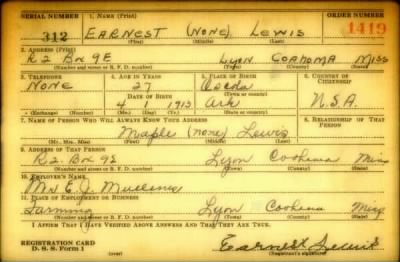 SERIAL NUMBER 1. NAME (Print) ORDER NUMBER
312 EARNEST (NONE) LEWIS 1419
(First) (Middle) (Last)
2. ADDRESS (Print)
R2 Box 9E Lyon COAHOMA MISS
(Number and street or R. F. D. number) (Town) (County) (State)
3. TELEPHONE 4. AGE IN YEARS 5. PLACE OF BIRTH 6. COUNTRY OF CITIZENSHIP
NONE 27
DATE OF BIRTH (Town or county)
4 1 1913 Ark U.S.A.
(Exchange) (Number) (Mo.) (Day) (Yr.) (State or country)
7. NAME OF PERSON WHO WILL ALWAYS KNOW YOUR ADDRESS 8. RELATIONSHIP OF THAT PERSON
Maple (none) Lewis
(Mr., Mrs., Miss) (First) (Middle) (Last)
9. ADDRESS OF THAT PERSON
R2. Box 9E Lyon Miss
(Number and street or R. F. D. number) (Town) (County) (State)
10. EMPLOYER'S NAME
Mr E. J. Mullens
11. PLACE OF EMPLOYMENT OR BUSINESS
Farming Lyon Miss
(Number and street or R. F. D. number) (Town) (County) (State)
I AFFIRM THAT I HAVE VERIFIED ABOVE ANSWERS AND THAT THEY ARE TRUE.
REGISTRATION CARD Earnest Lewis
D. S. S. Form 1 (over) (Registrant's signature)